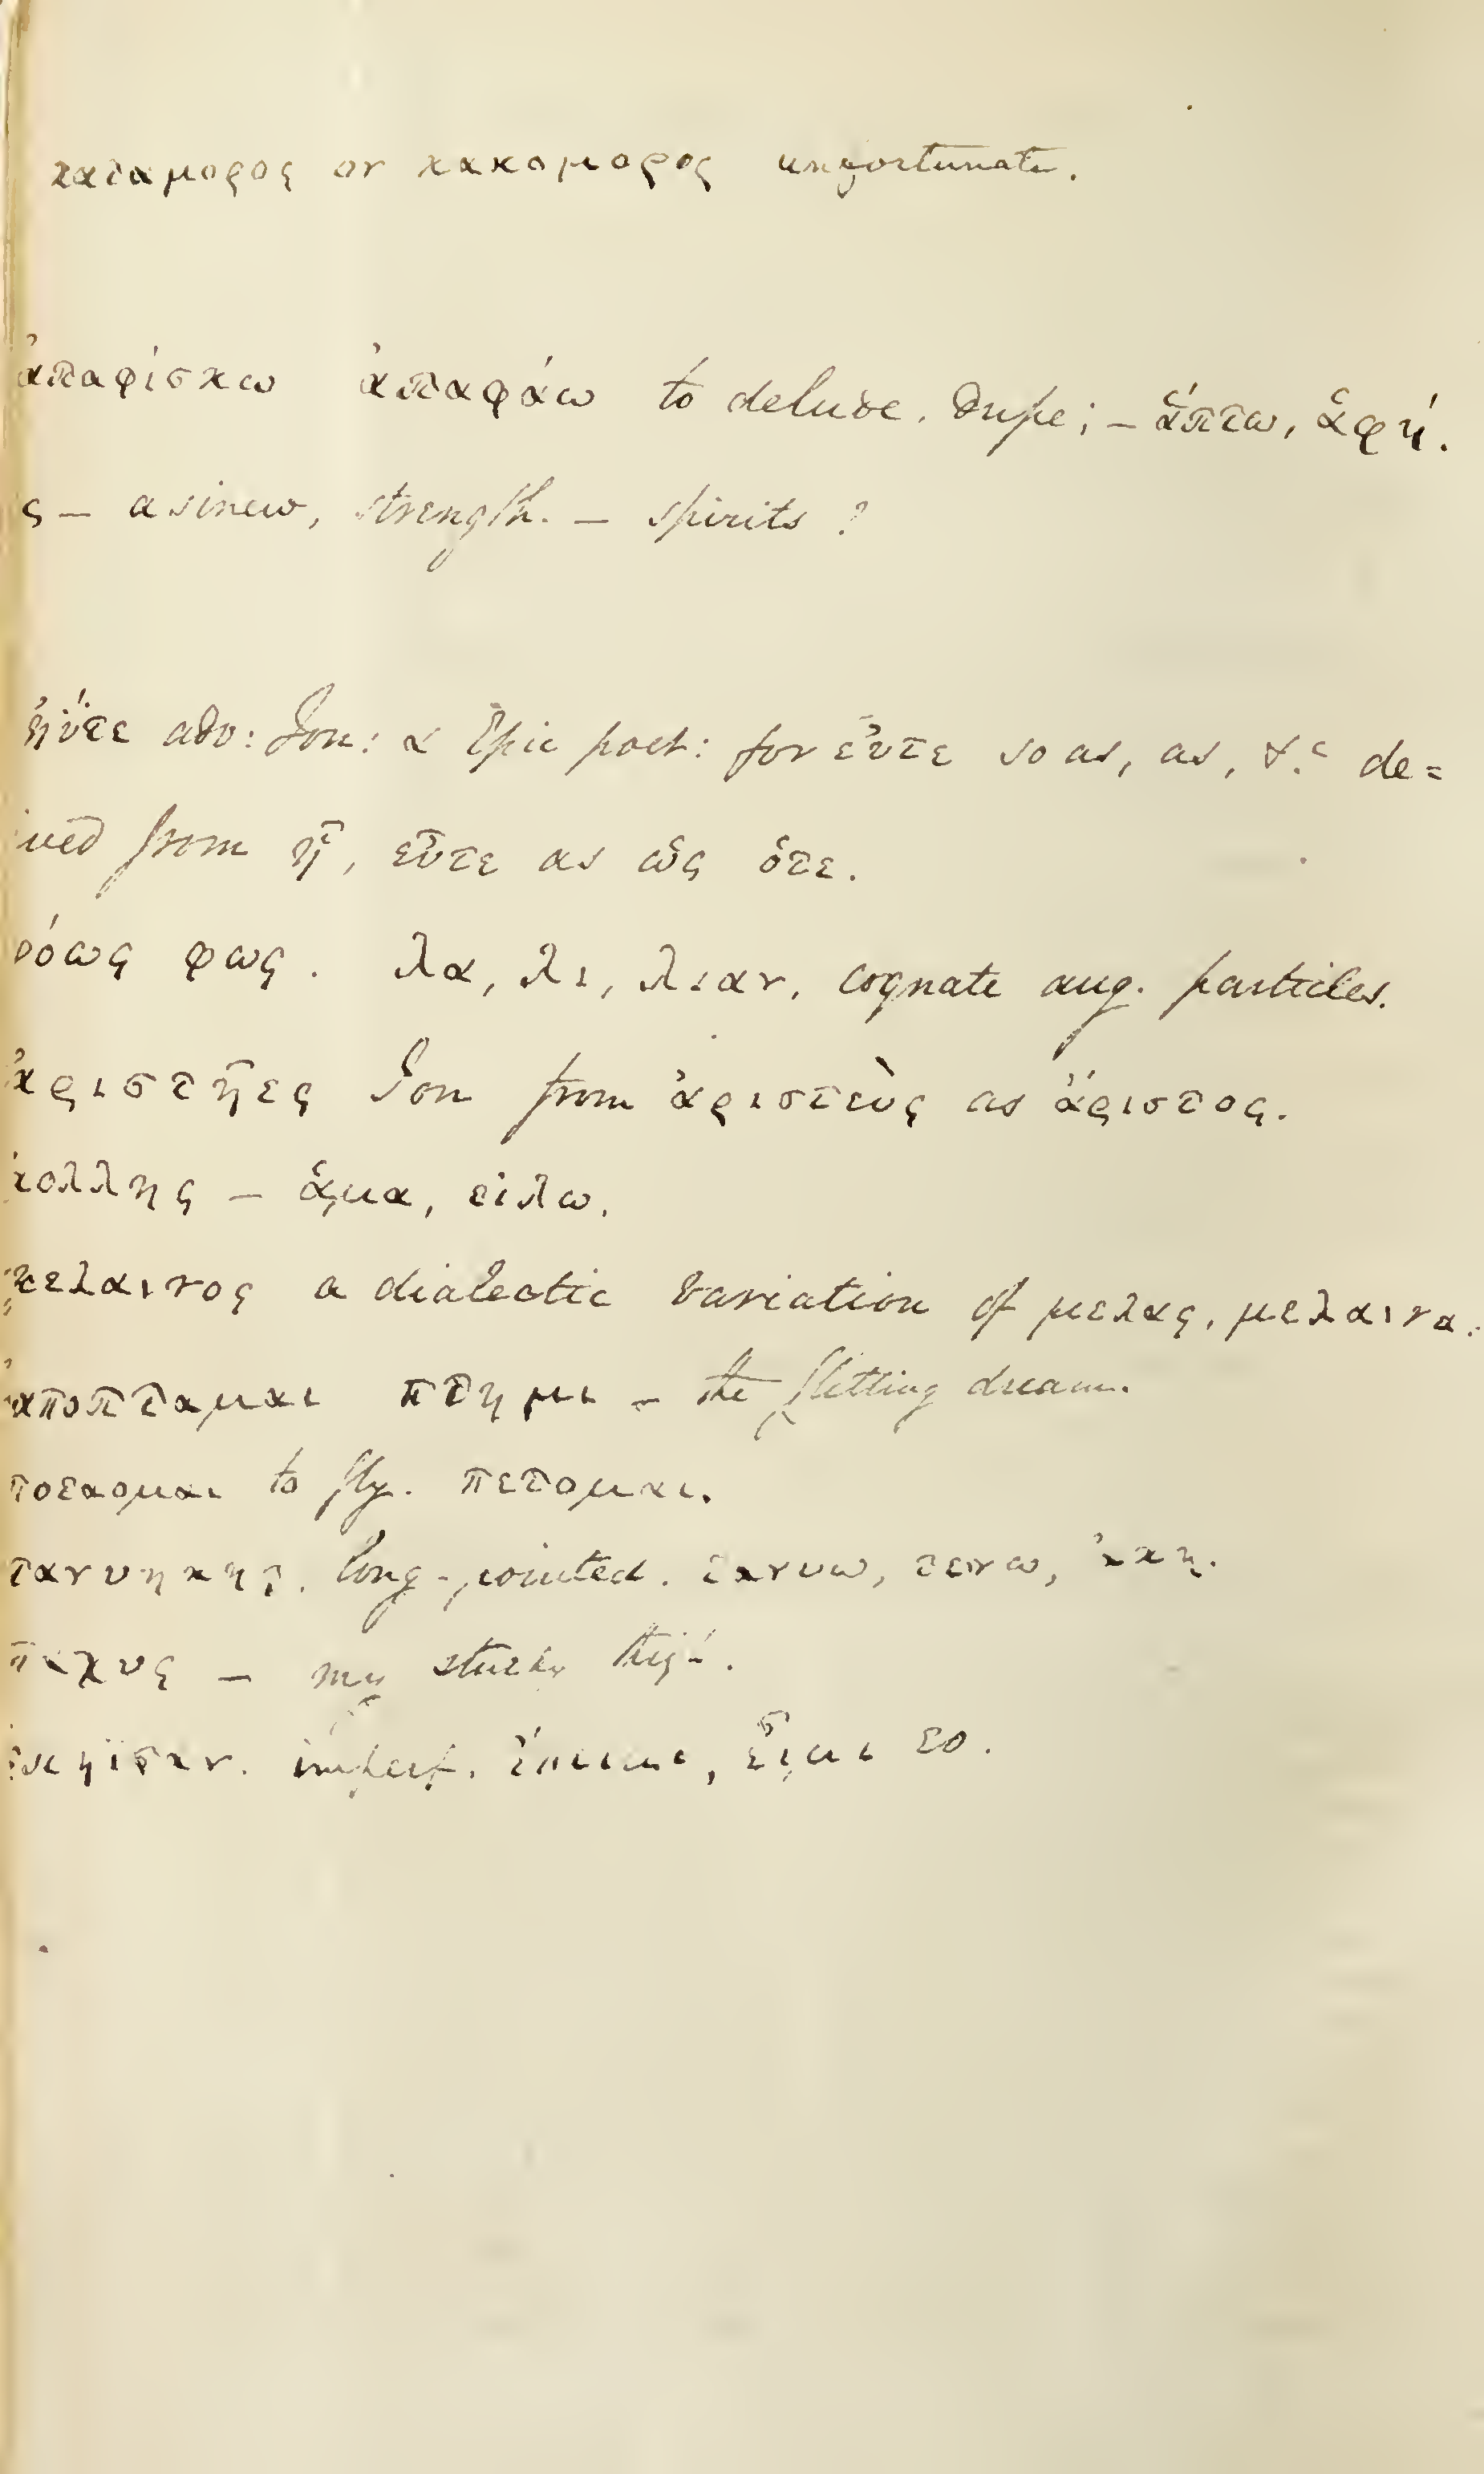 καταμορος or κακομορος unfortunate.
ἀπαφίσκω ἀπαφάω to delude. Dupe; – ἅπτω, ἁφή.
ς – a sinew, strength. – spirits?
ἠΰτε adv: Ion: & Epic poet: for εὖτε so as, as, &c de=
ived from ἦ, εὖτε as ὡς ὁτε.
όως φως. λα, λι, λιαν, cognate aug. particles.
ἀριστῆες Ion from ἀριστεὺς as ἄριστος.
ἀολλης – ἁμα, εἰλω.
κελαινος a dialectic variation of μελας, μελαινα.
ἀποπταμαι πτημι – the flitting dream.
ποταομαι to fly. πετομαι.
τανυηκης. long-pointed. τανυω, τεινω, ἀκη.
παχυς – my sturdy thigh.
imperf. ἐπειμι, εἶμι eo.